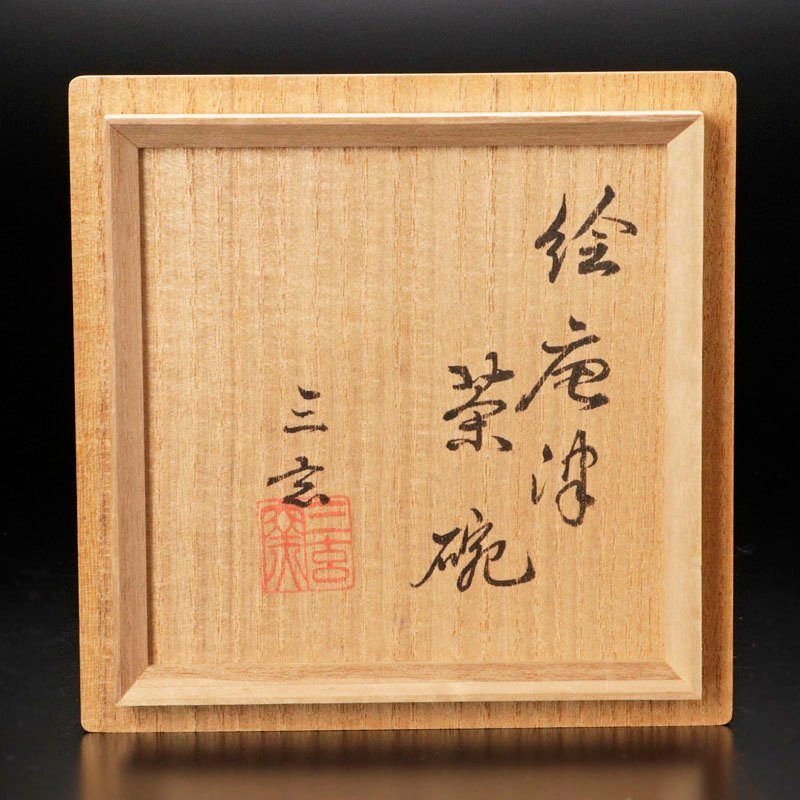 絵唐津
茶碗
三玄